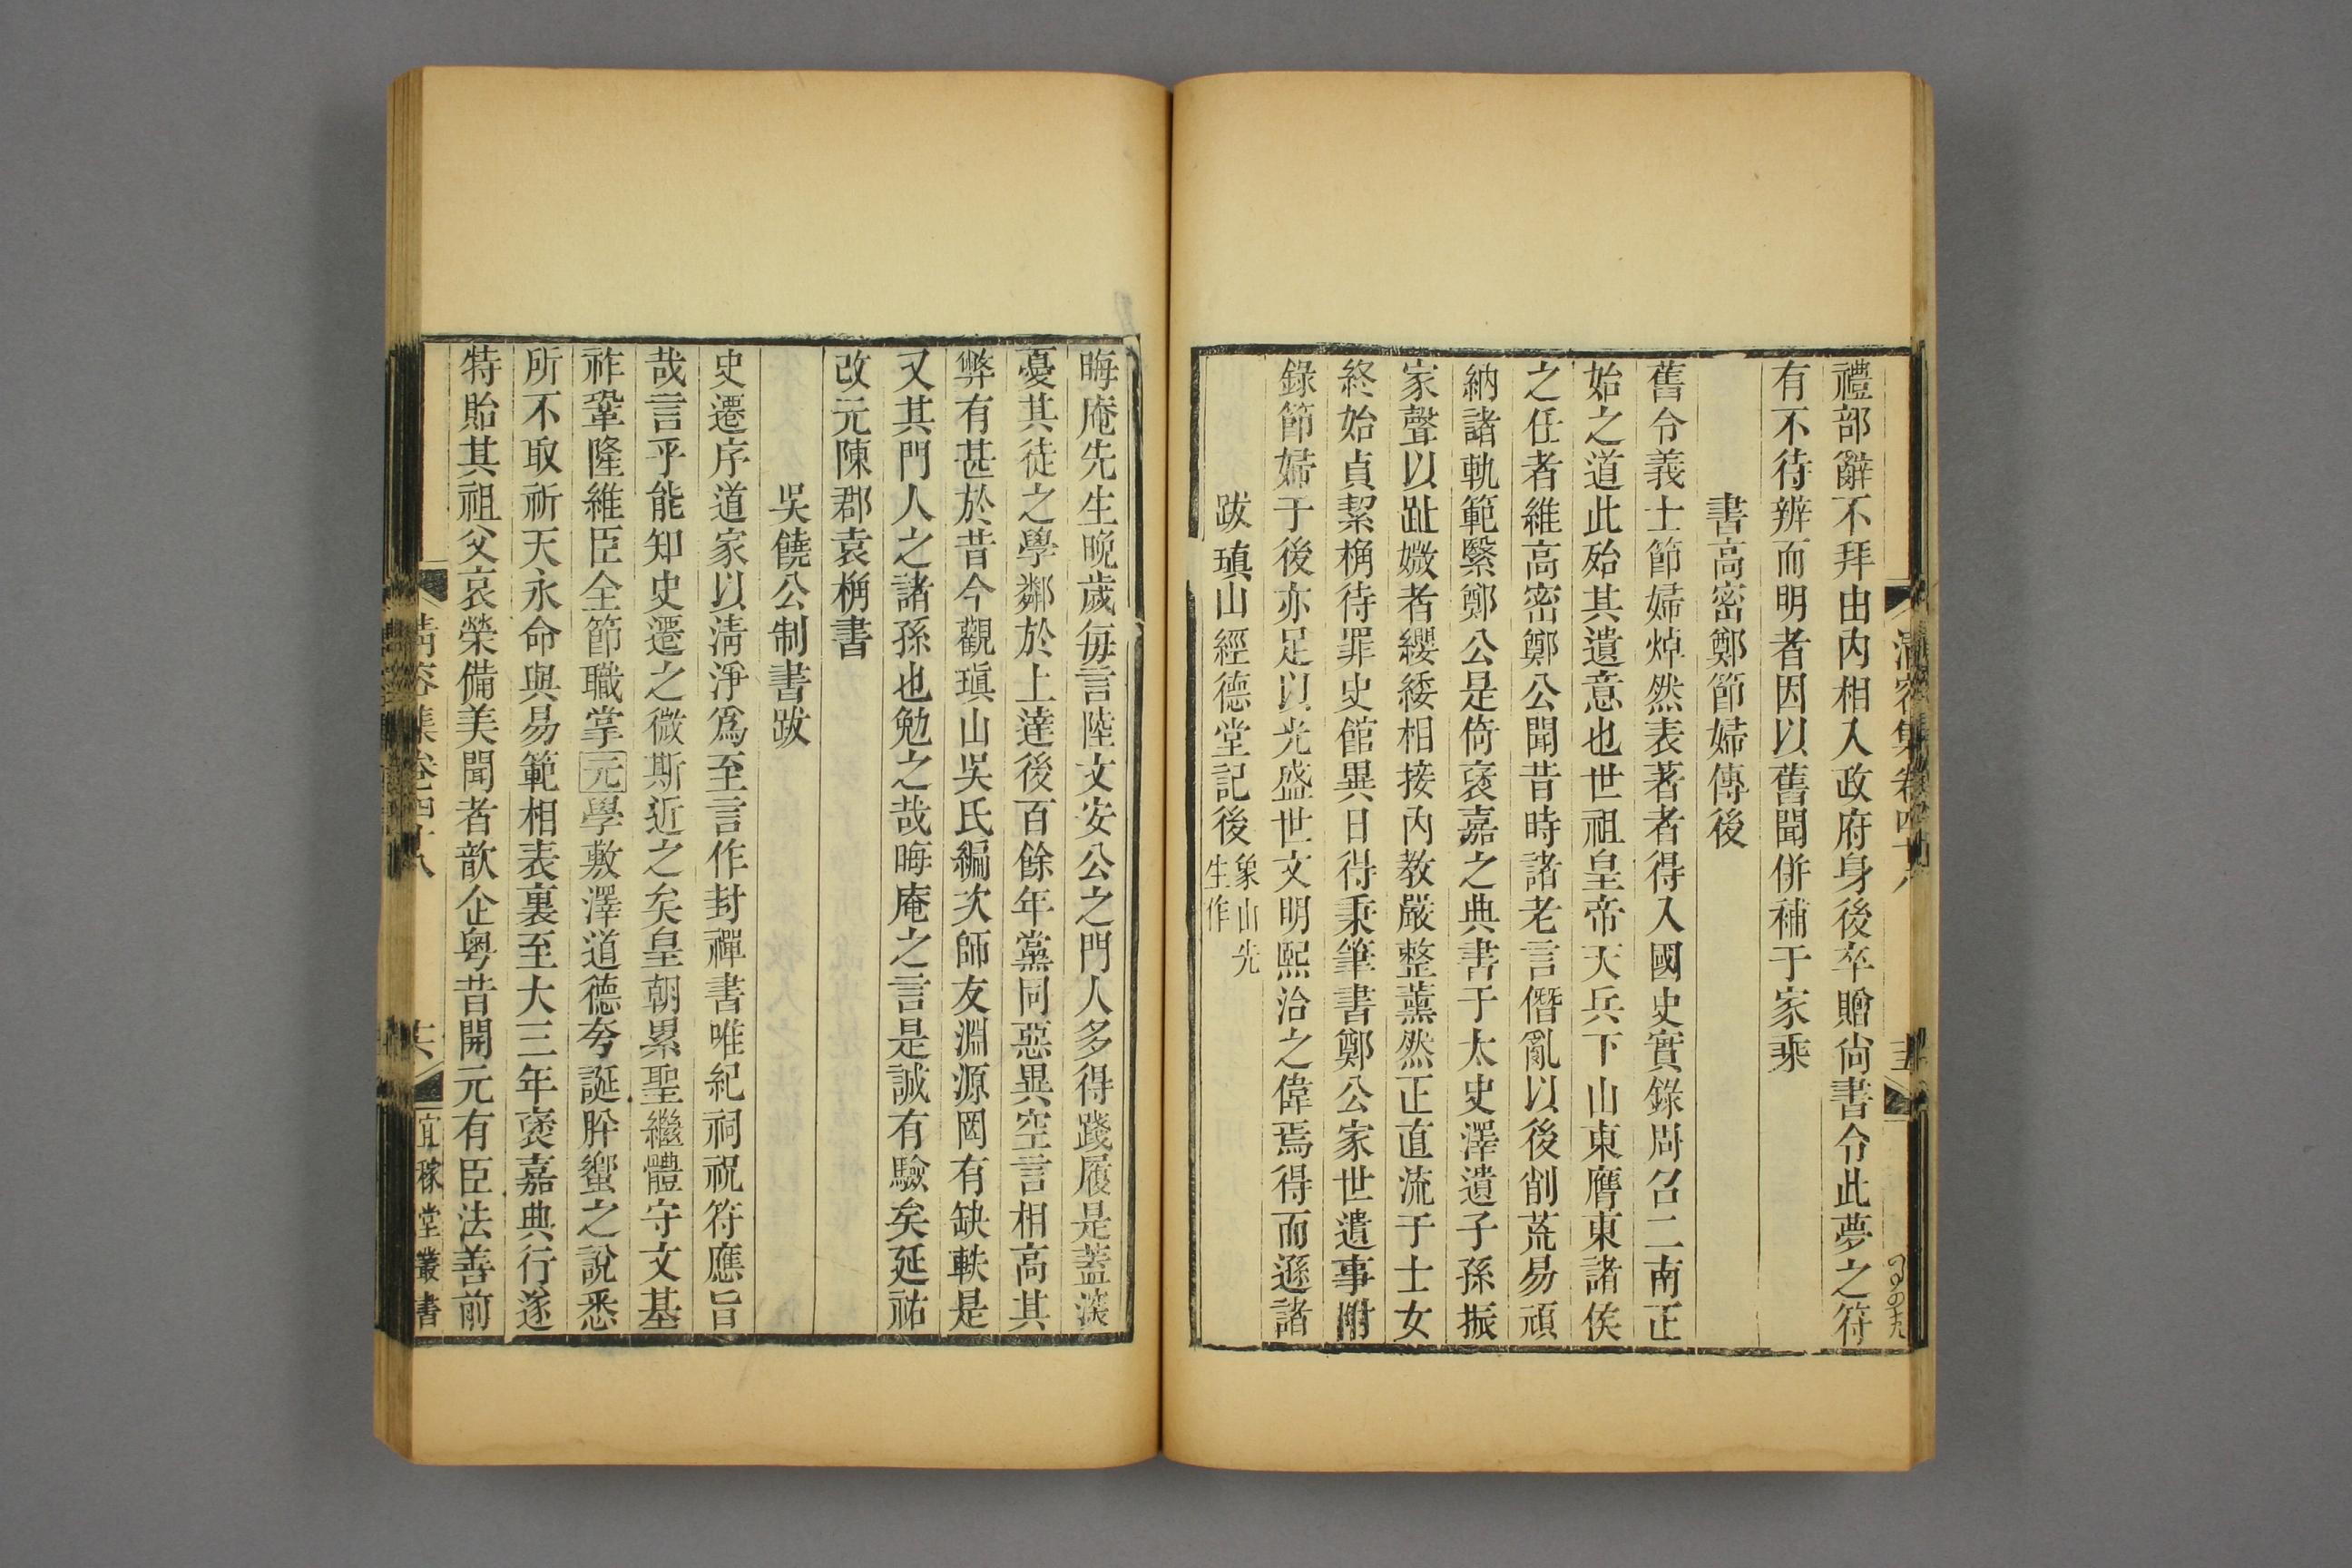 禮部辭不拜由內相入政府身後卒贈尙書令此夢之符
有不待辨而明者因以舊聞併補于家乘
書高密鄭節婦傳後
舊令義士節婦焯然表著者得入國史實錄周召二南正
始之道此殆其遺意也世祖皇帝天兵下山東膺東諸侯
之任者維高密鄭公聞昔時諸老言僭亂以後削荒易頑
納諸軌範繄鄭公是倚褒嘉之典書于太史澤遺子孫振
家聲以趾媺者纓緌相接內教嚴整薰然正直流于士女
終始貞絜稱待罪史館異日得秉筆書鄭公家世遺事附
錄節婦于後亦足以光盛世文明熙洽之偉焉得而遜諸
跋瑱山經德堂記後象山先
生作
晦庵先生晚歲每言陸文安公之門人多得踐履是蓋深
憂其徒之學鄰於上達後百餘年黨同惡異空言相高其
弊有甚於昔今觀瑱山吳氏編次師友淵源罔有缺軼是
又其門人之諸孫也勉之哉晦庵之言是誠有驗矣延祐
改元陳郡袁桷書
吳饒公制書跋
史遷序道家以淸淨爲至言作封禪書唯紀祠祝符應旨
哉言乎能知史遷之微斯近之矣皇朝累聖繼體守文基
祚鞏隆維臣全節職掌元學敷澤道德夸誕肸蠁之說悉
所不取祈天永命與易範相表裏至大三年褒嘉典行遂
特貽其祖父哀榮備美聞者歆企粵昔開元有臣法善前
淸容集卷四十八
十六
宜稼堂叢書